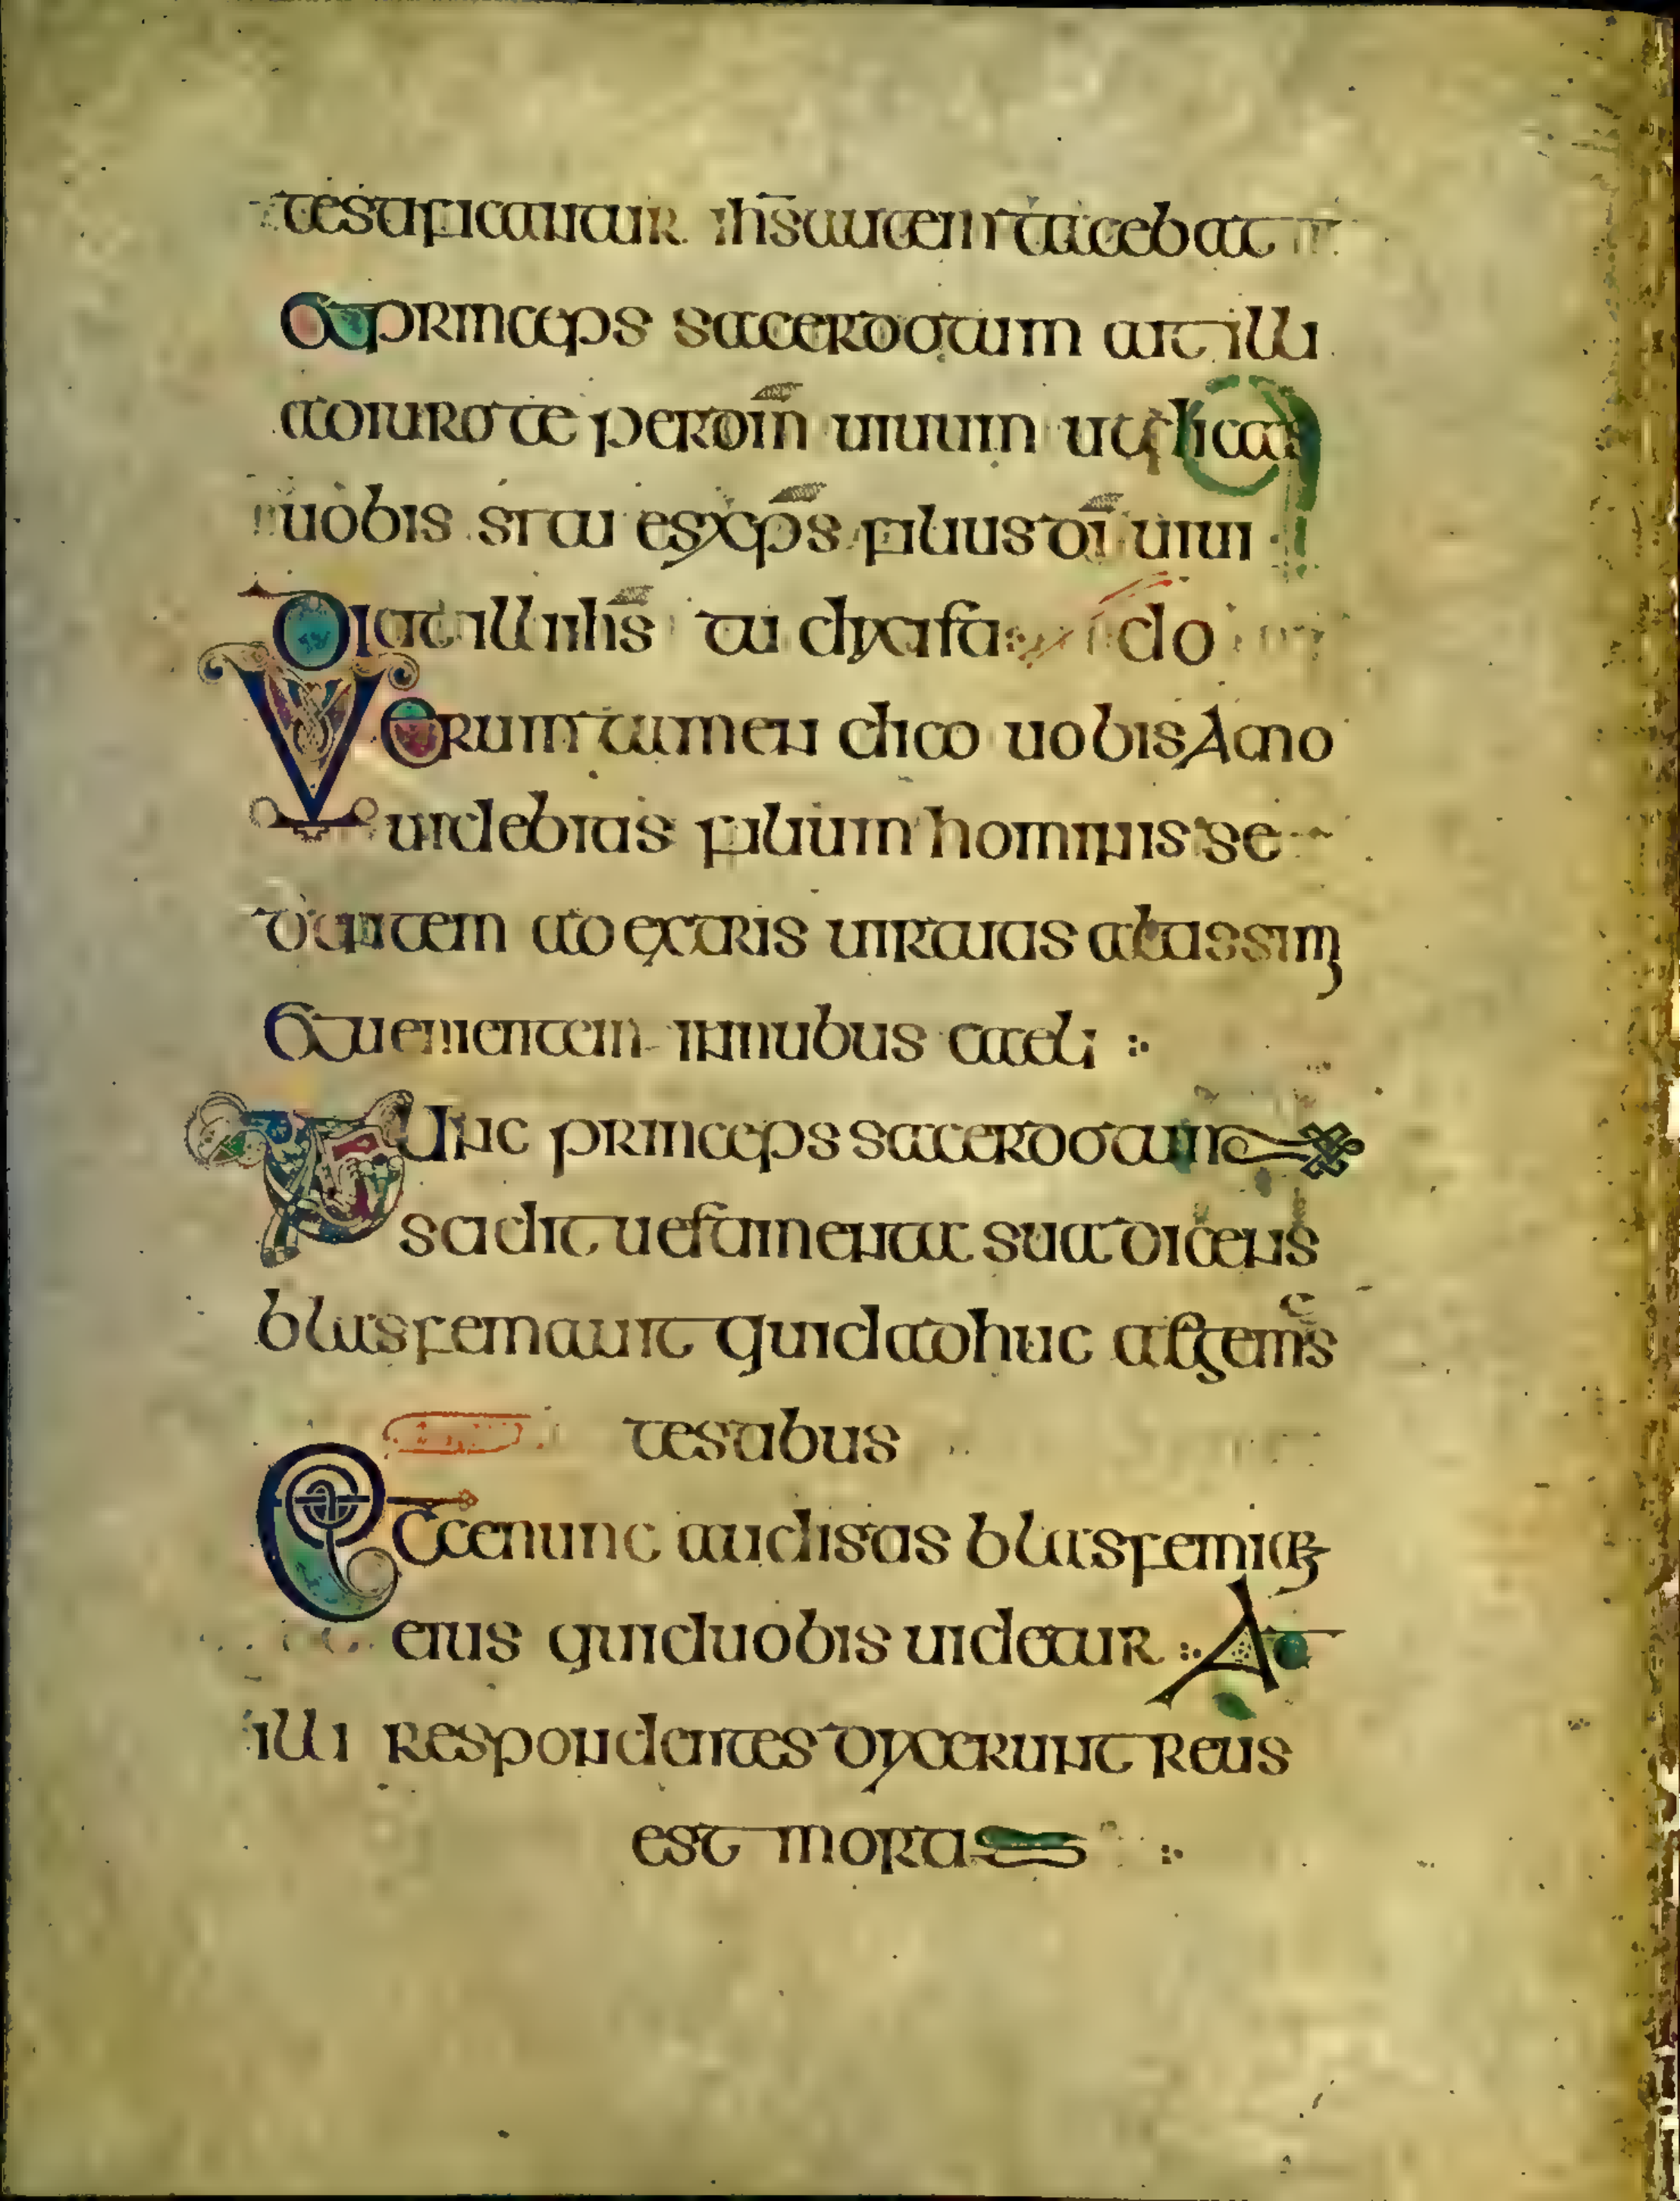 testificantur ihs autem tacebat
et princeps sacerdotum ait illi
adiuro te per dm̄ uiuum ut dicas
uobis si tu es xp̄s filius dī uiui
Dicit illi ihs̄ tu dixisti
Verum tamen dico uobis Amodo
uidebitis filium hominis se
dentem ad extris uirtutis altissimi
Et uenientem in nubus caeli :·
Tunc princeps sacerdotum
scidit uestimenta sua dicens
blasfemauit quid adhuc egemus
testibus
Ecce nunc audistis blasfemiam
eius quid uobis uidetur :· At
illi respondentes dixerunt reus
est mortis :·